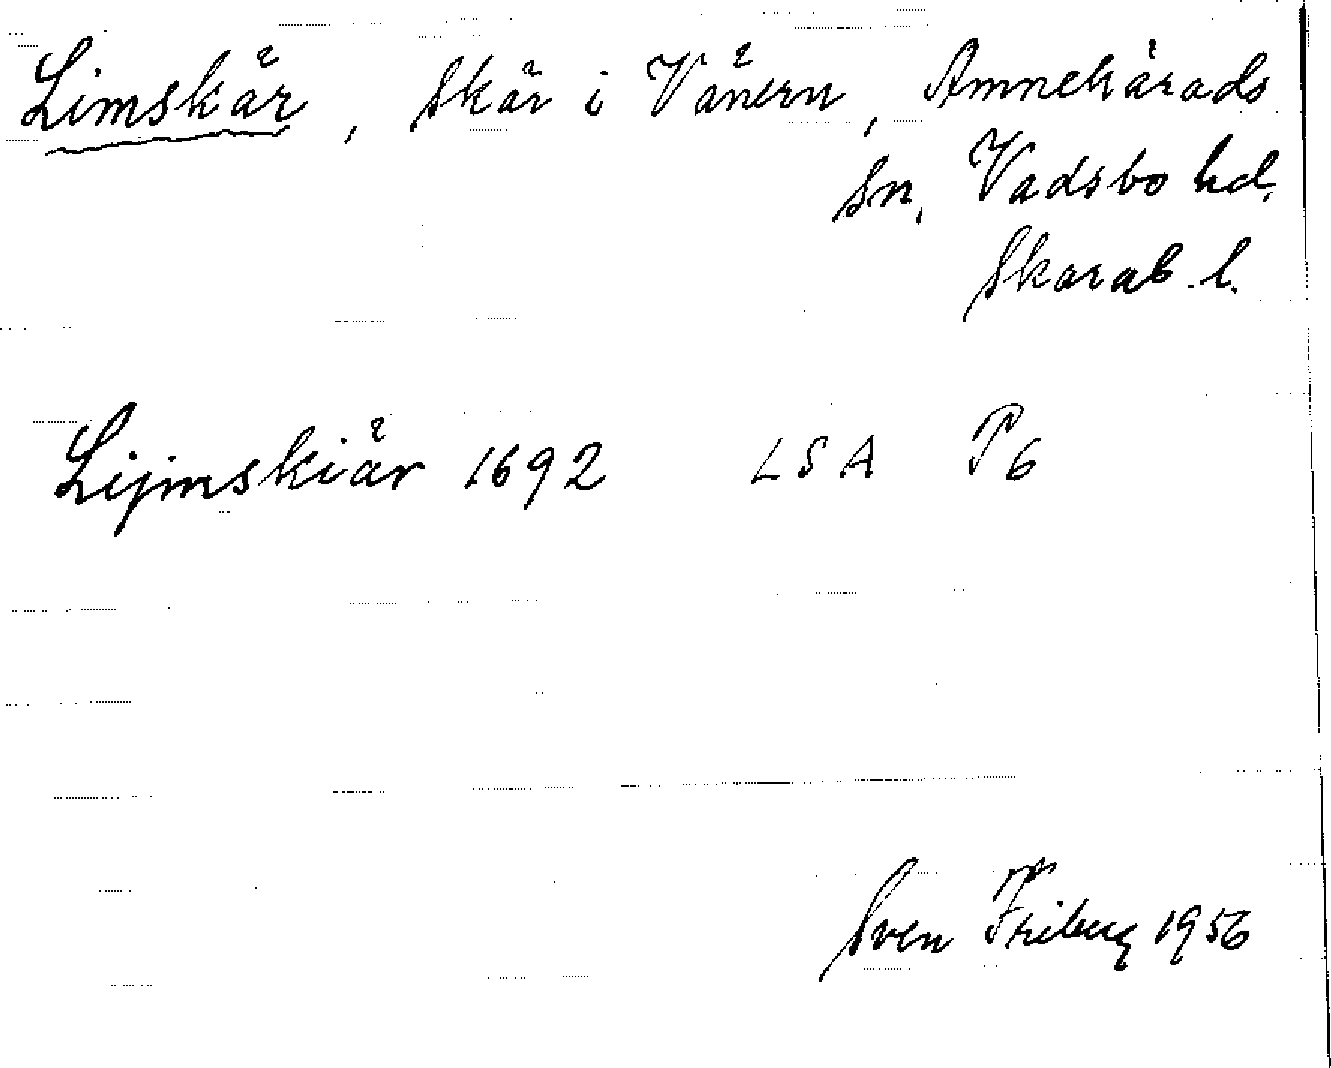 Limskär, skär i Vänern, Amnehärads
sn, Vadsbo hd,
Skarab. l.
Lijmskiär 1692 LSA P6
Sven Friberg 1956